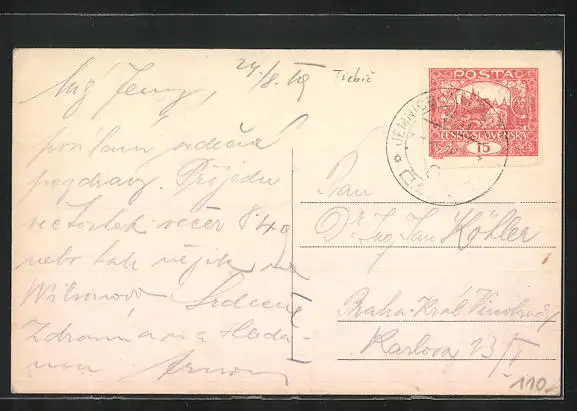 24/8. 19 Třebíč
Můj Jeny,
posílám srdečné
pozdravy. Přijedu
ve čtvrtek večer 8·49
nebo tak nějak na
Wilsonovo Srdečně
Zdraví a na shleda-
nou Arnon
POSTA
ČESKO-SLOVENSKÁ
15
JEMNICE
Pan
Dr Ing Jan Köhler
Praha-Král. Vinohrady
Karlova 23/I
110.-